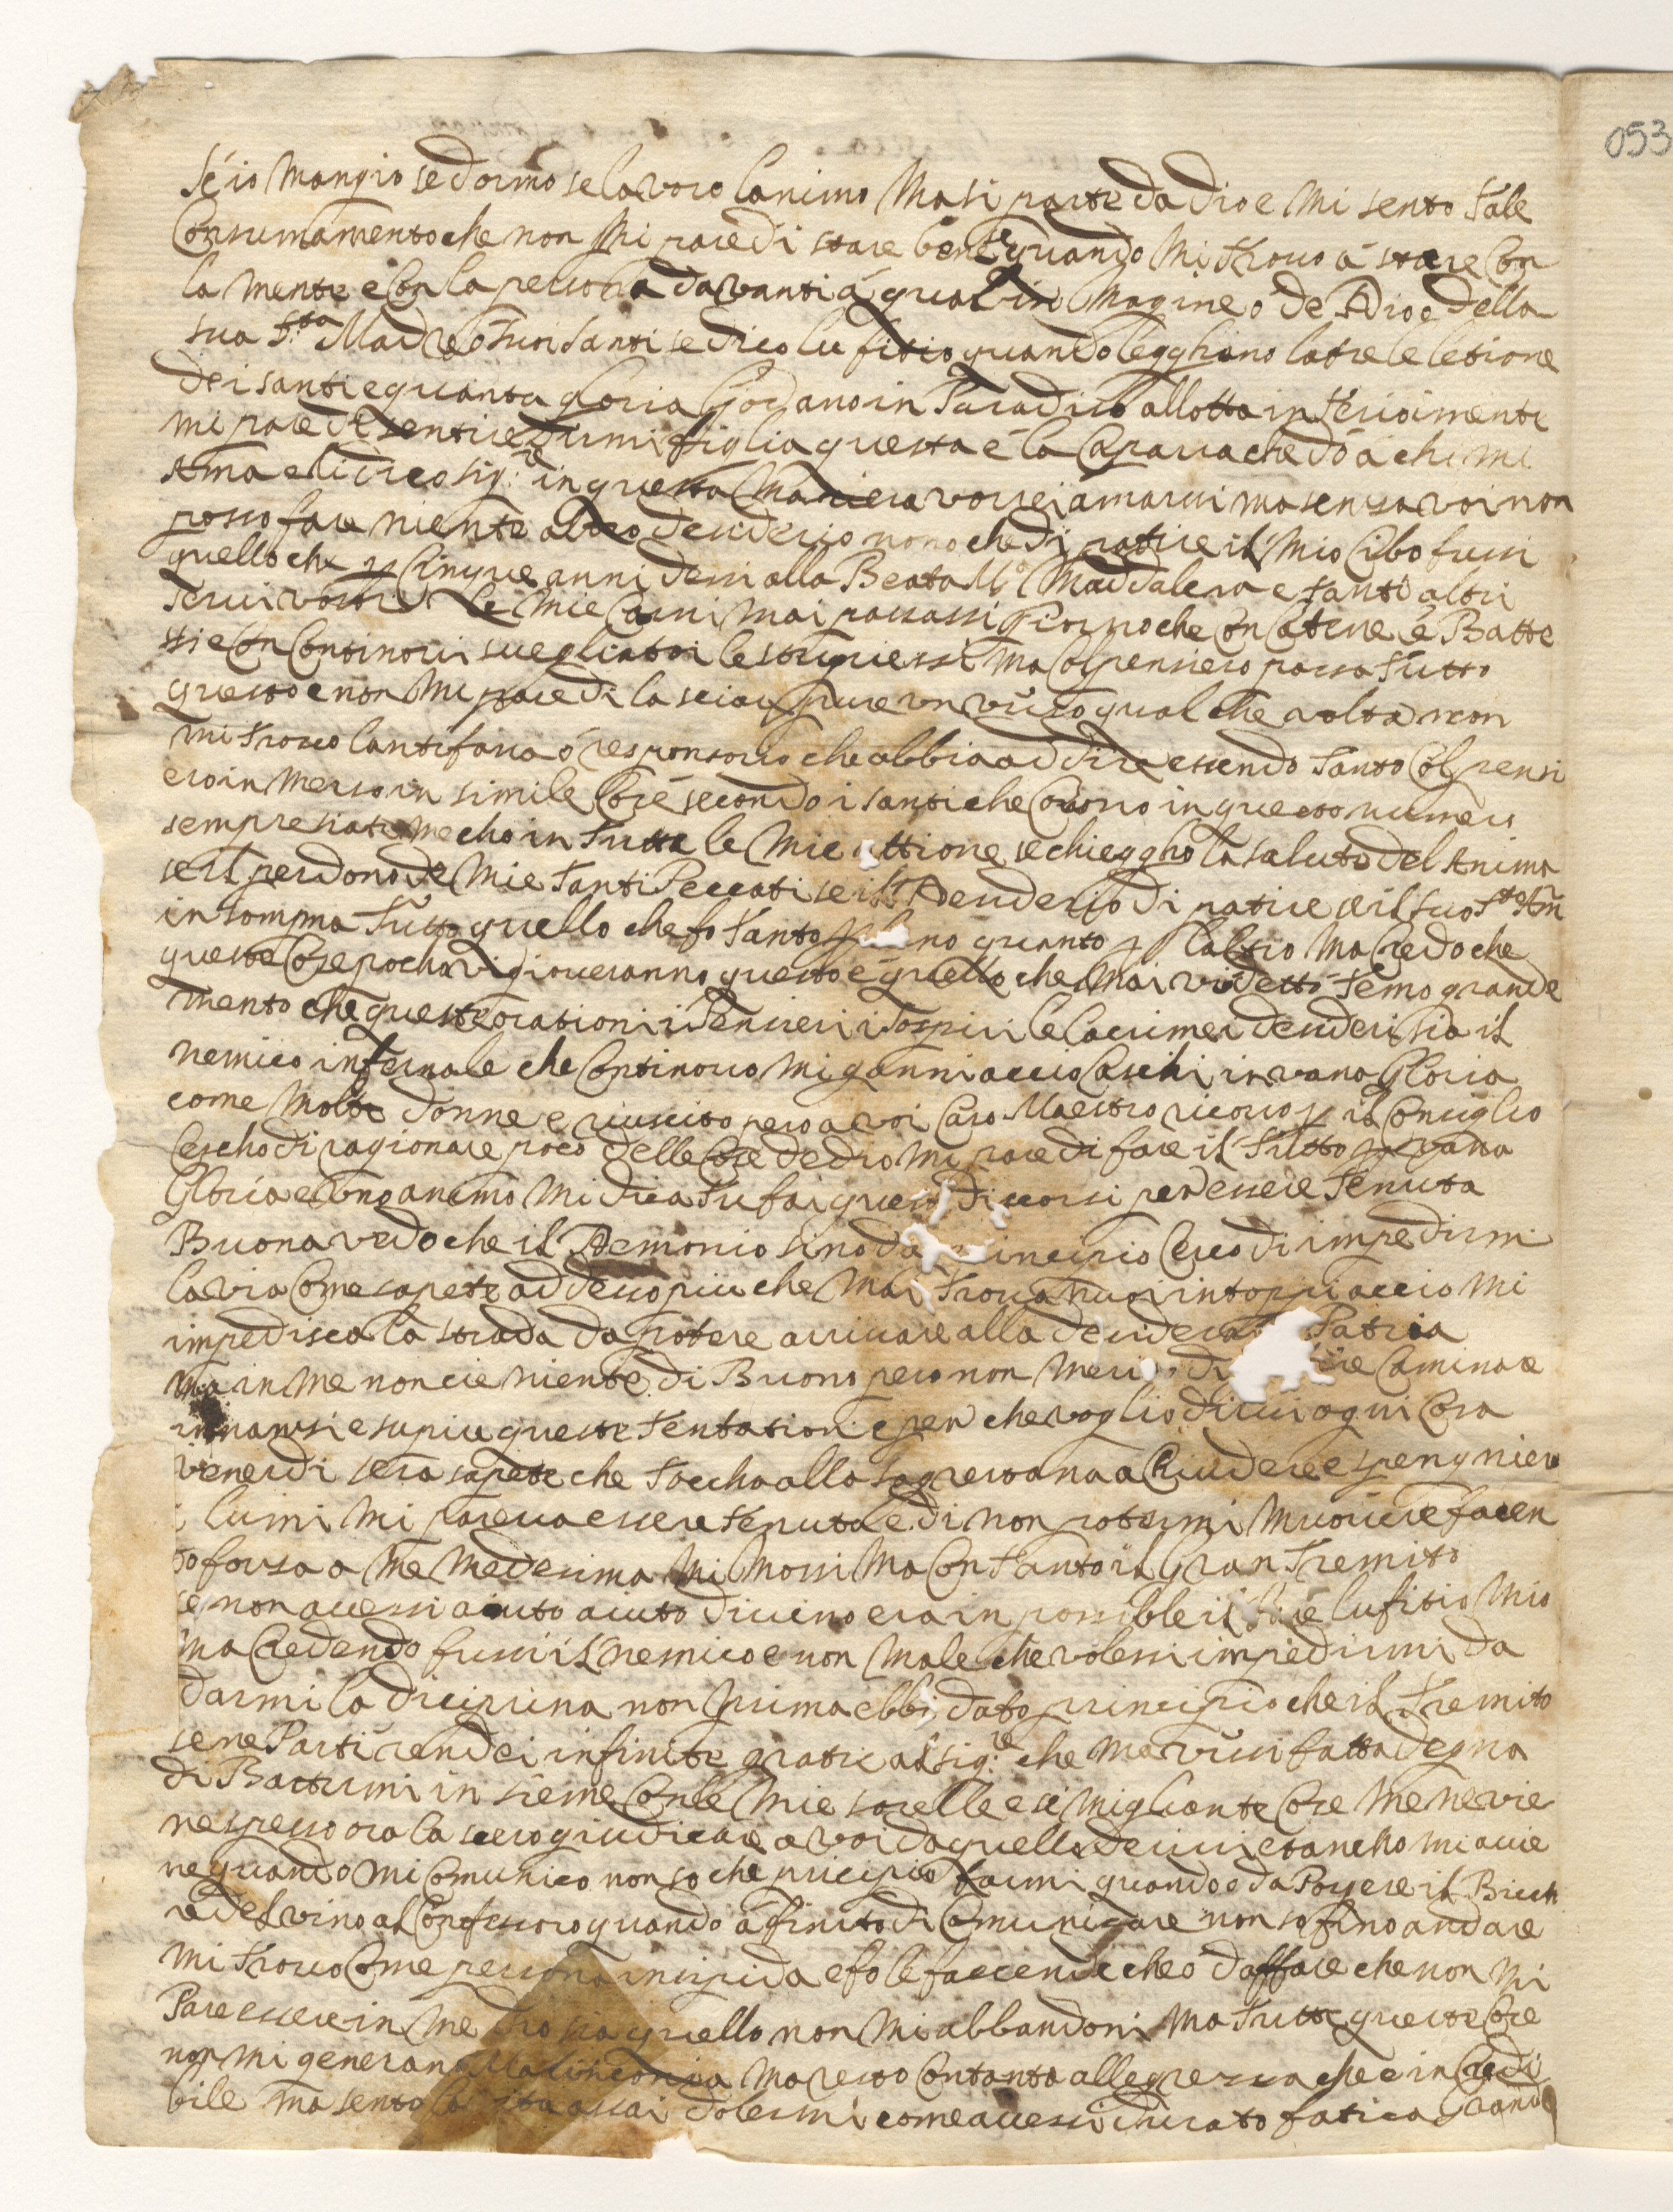 053
Se io Mangio se dormo se lavoro lanimo Ma si parte da dio e Mi sento tale
Consumamento che non Mi pare di stare bene se quando Mi trovo á stare Con
la Mente e Con la persona davanti á qual in Magine o de Dio e della
sua S.ta Madre ó suoi Santi se dico lufitio quando legghano latre le letione
dei santi e quanta gloria Godano in Paradiso allotta interioimente
mi pare di sentire dirmi figlia questa é la Caparra che dó á chi mi
Ama e li dico sig.re in questa Maniera vorrei amarvi ma senza voi non
posso fare niente altro desiderio nono che di patire il Mio Cibo fussi
quello che p Cinque anni dessi alla Beata M.a Maddalena e tanti altri
servi vostri le Mie Carni Mai passassi Giorno che Con Catene é Batte
sti e Con Continovi svegliatoi le strignessi ma Col pensiero passa tutto
questo e non Mi pare di lasciar pure un vuoto qual che volta non
mi trovo lantifana ó responsorio che abbia ad dire essendo tanto Col pensi
ero in Merso in simile Cose secondo i santi che Corono in questo numero
sempre siate mecho in tutte le Mie attione se chiegghó la salute del Anima
se il perdono de Mie tanti Peccati se il Desiderio di patire se il suo S.to Am
in somma tutto quello che fo tanto p uno quanto p laltro Ma Credo che
queste Cose pocho vi gioveranno questo é quello che Mai vi detti temo grande
mento che queste orationi i Pensieri i sospiri le lacrime i desideri sia il
nemico infernale che Continovo Miganni accio Caschi in vana Gloria
come Molte donne e riuscito pero a voi Caro Maestro ricorro p il Consiglio
Cercho di ragionare poco delle Cose de dio Mi pare di fare il tutto p vana
Gloria e Uno animo Mi dica tu fai questi discorsi per essere tenuta
Buona vedo che il Demonio sino da principio Cerco di impedirmi
la via Come sapete ad desso piu che Mai trova nuovi intoppi accio Mi
impedisca la strada da potere arrivare alla desidera Patria
Ma in me non cie niente di Buono pero non Meri di Caminare
innansi e su piu queste tentationi e per che voglio dirvi ogni Cosa
venerdi sera sapete che toccha alla sagrestana a Chiudere e spengniere
i lumi Mi pareva essere tenuta e di non potermi Muovere facen
do forsa a Me Medesima Mi Mossi Ma Con tanto il Gran tremito
se non avessi aiuto aiuto divino era in possible il fare lufitio Mio
ma Credendo fussi il nemico e non Male che volessi impedirmi da
darmi la diciprina non prima ebbi dato principio che il tremito
se ne Parti rendei infinite gratie al sig.re che Mavessi fatta degna
di Battermi in sieme Con le Mie sorelle e si Migliante Cose Me ne vie
ne spesso ora la scero giudicare a voi da quello de vi esancho mi avie
ne quando Mi Comunico non so che pricipio farmi quando e da Porgere il Bicch
re del vino al Confessoro quando á finito di Comunigare non so fino andare
Mi trovo Come persona insipida e fo le faccende che ó daffare che non Mi
Pare essere in Me dio sia quello non Mi abbandoni Ma tutte queste Cose
non Mi generano Malinconia Ma resto Con tanta allegrezza che e in Credi
bile ma sento la vita assai dolermi come avessi durato fatica Grande